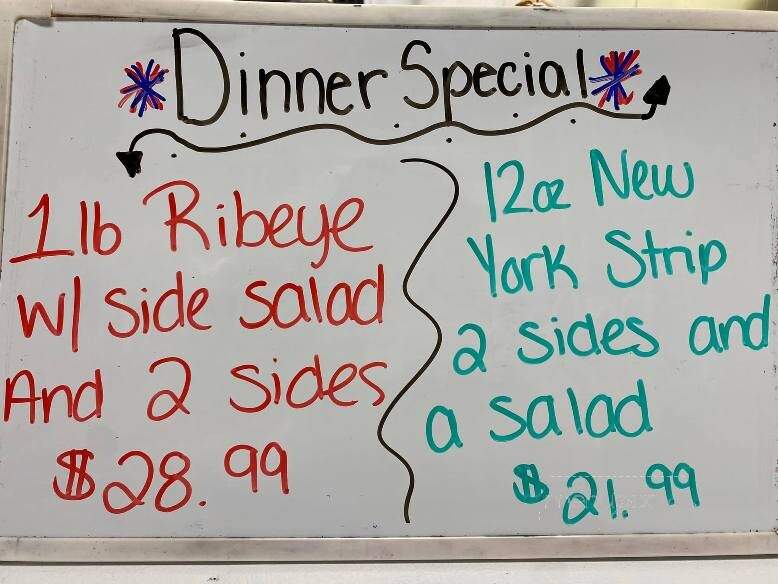 Dinner Special
1 lb Ribeye
w/ side salad
And 2 sides
$28.99
12oz New
York Strip
2 sides and
a salad
$21.99